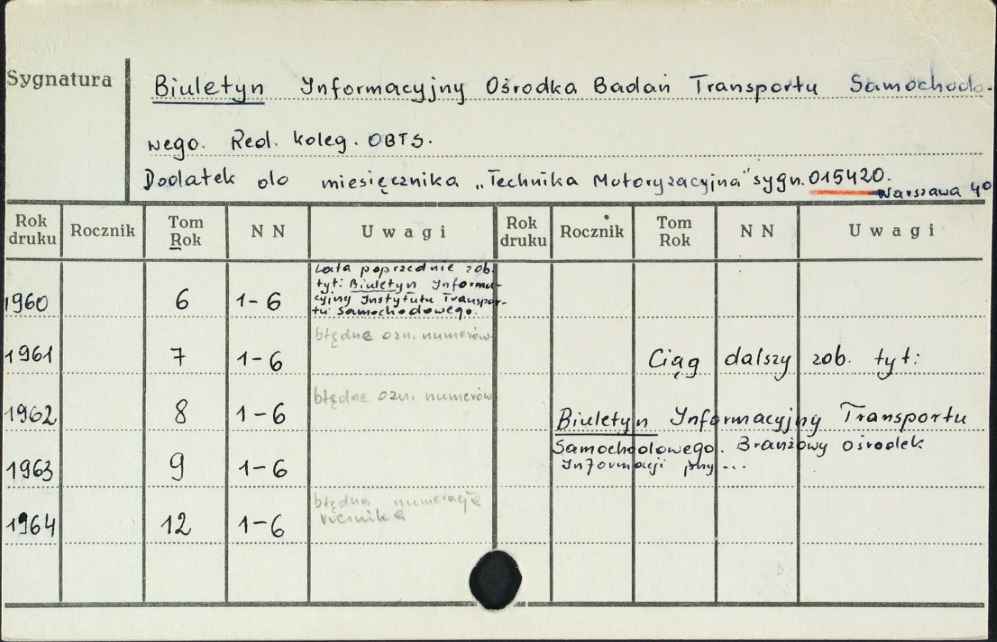 Sygnatura
Biuletyn Informacyjny Ośrodka Badań Transportu Samochodo-
wego. Red. koleg. OBTS.
Dodatek do miesięcznika „Technika Motoryzacyjna" sygn. 015420.
Warszawa 4°
Rok druku Rocznik Tom Rok N N Uwagi Rok druku Rocznik Tom Rok N N Uwagi
1960 6 1-6
Lata poprzednie zob.
tyt: Biuletyn Informa-
cyjny Instytutu Transpor-
tu Samochodowego.
1961 7 1-6 błędne ozn. numerów
1962 8 1-6 błędne ozn. numerów
1963 9 1-6
1964 12 1-6 błędna numeracja
rocznika
Ciąg dalszy zob. tyt:
Biuletyn Informacyjny Transportu
Samochodowego. Branżowy Ośrodek
Informacji przy ...